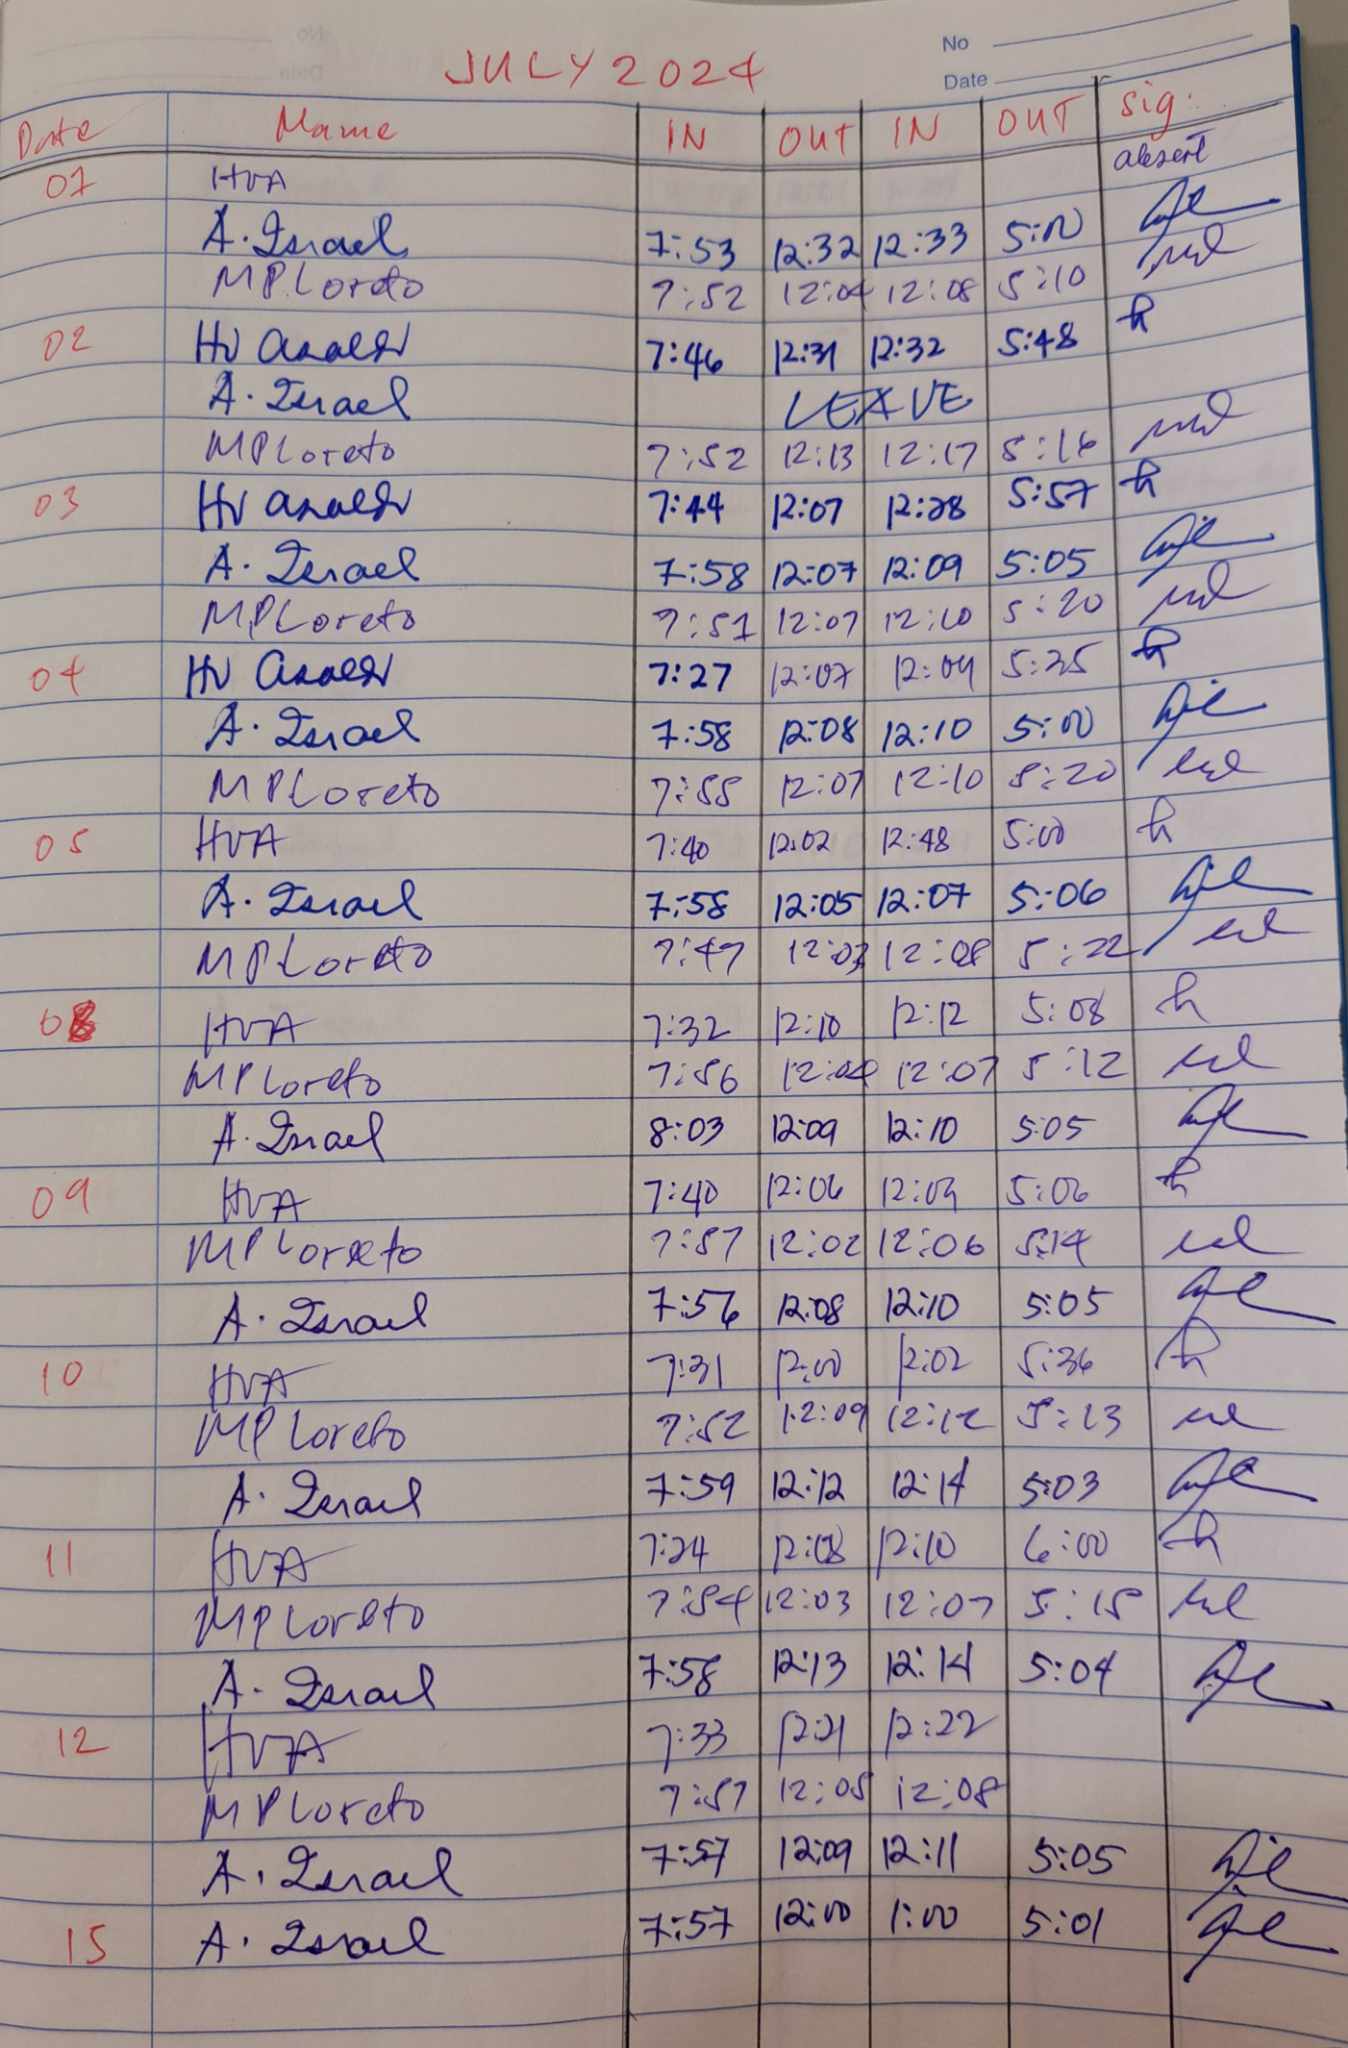 No
JULY 2024
Date
Date Name IN OUT IN OUT Sig.
01 HVA absent
A. Israel 7:53 12:32 12:33 5:00
MPLoreto 7:52 12:04 12:08 5:10
02 HV 7:46 12:31 12:32 5:48
A. Israel LEAVE
MPLoreto 7:52 12:13 12:17 5:16
03 HV 7:44 12:07 12:28 5:57
A. Israel 7:58 12:07 12:09 5:05
MPLoreto 7:51 12:07 12:10 5:20
04 HV 7:27 12:07 12:09 5:35
A. Israel 7:58 12:08 12:10 5:00
MPLoreto 7:55 12:07 12:10 5:20
05 HVA 7:40 12:02 12:48 5:00
A. Israel 7:58 12:05 12:07 5:06
MPLoreto 7:47 12:03 12:08 5:22
08 HVA 7:32 12:10 12:12 5:08
MPLoreto 7:56 12:04 12:07 5:12
A. Israel 8:03 12:09 12:10 5:05
09 HVA 7:40 12:06 12:09 5:06
MPLoreto 7:57 12:02 12:06 5:14
A. Israel 7:56 12:08 12:10 5:05
10 HVA 7:31 12:00 12:02 5:36
MPLoreto 7:52 12:09 12:12 5:13
A. Israel 7:59 12:12 12:14 5:03
11 HVA 7:24 12:08 12:10 6:00
MPLoreto 7:54 12:03 12:07 5:15
A. Israel 7:58 12:13 12:14 5:04
12 HVA 7:33 12:21 12:22
MPLoreto 7:57 12:05 12:08
A. Israel 7:57 12:09 12:11 5:05
15 A. Israel 7:57 12:00 1:00 5:01